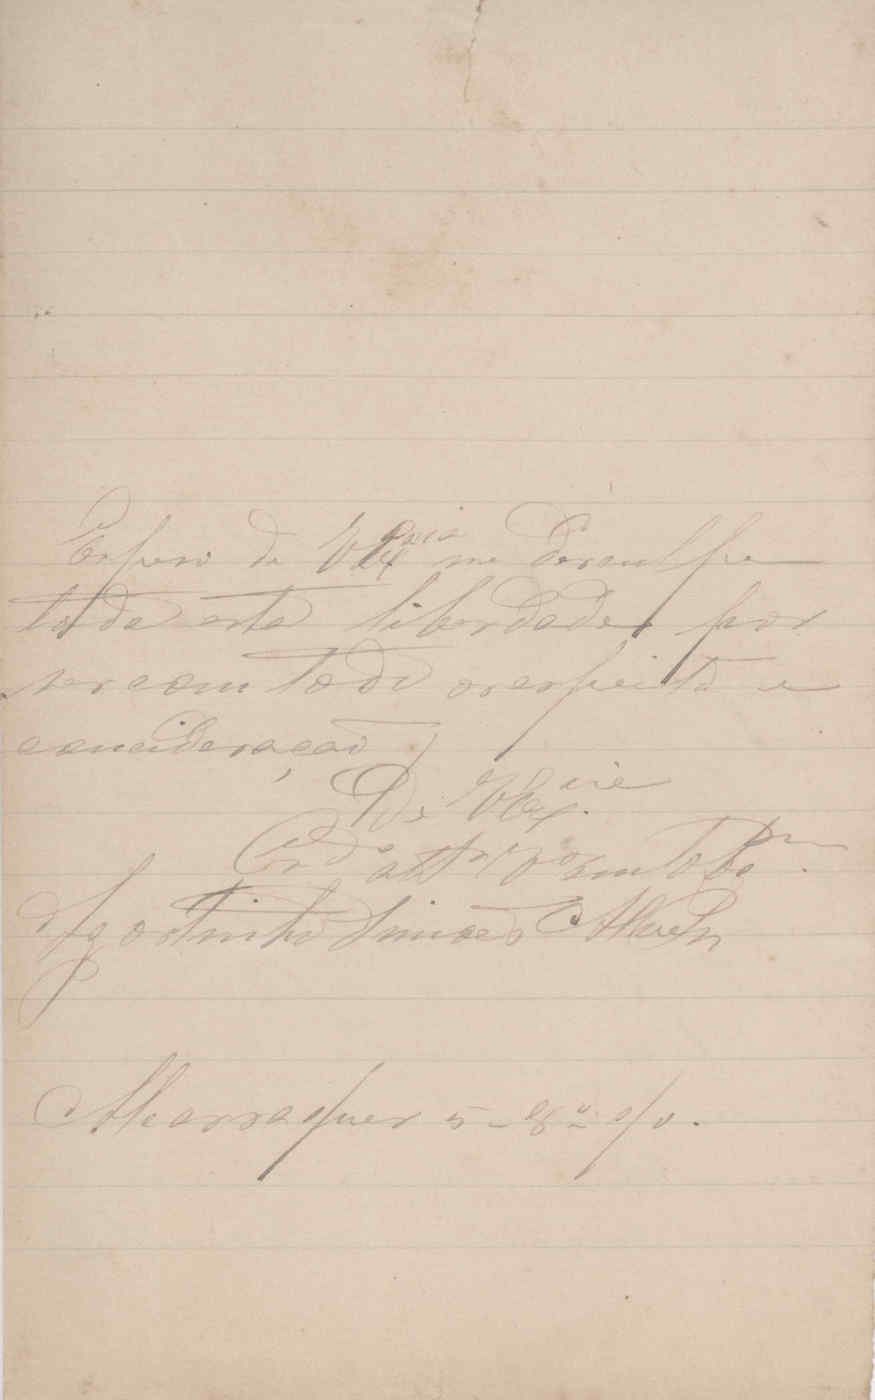 Espero de VEx.ncia me desculpe
toda esta liberdade por
ser com todo orespeito e
concideração
De VEx.cia
Cr.do att.
Agostinho Simões Alves
Alcarraques 5 - 8